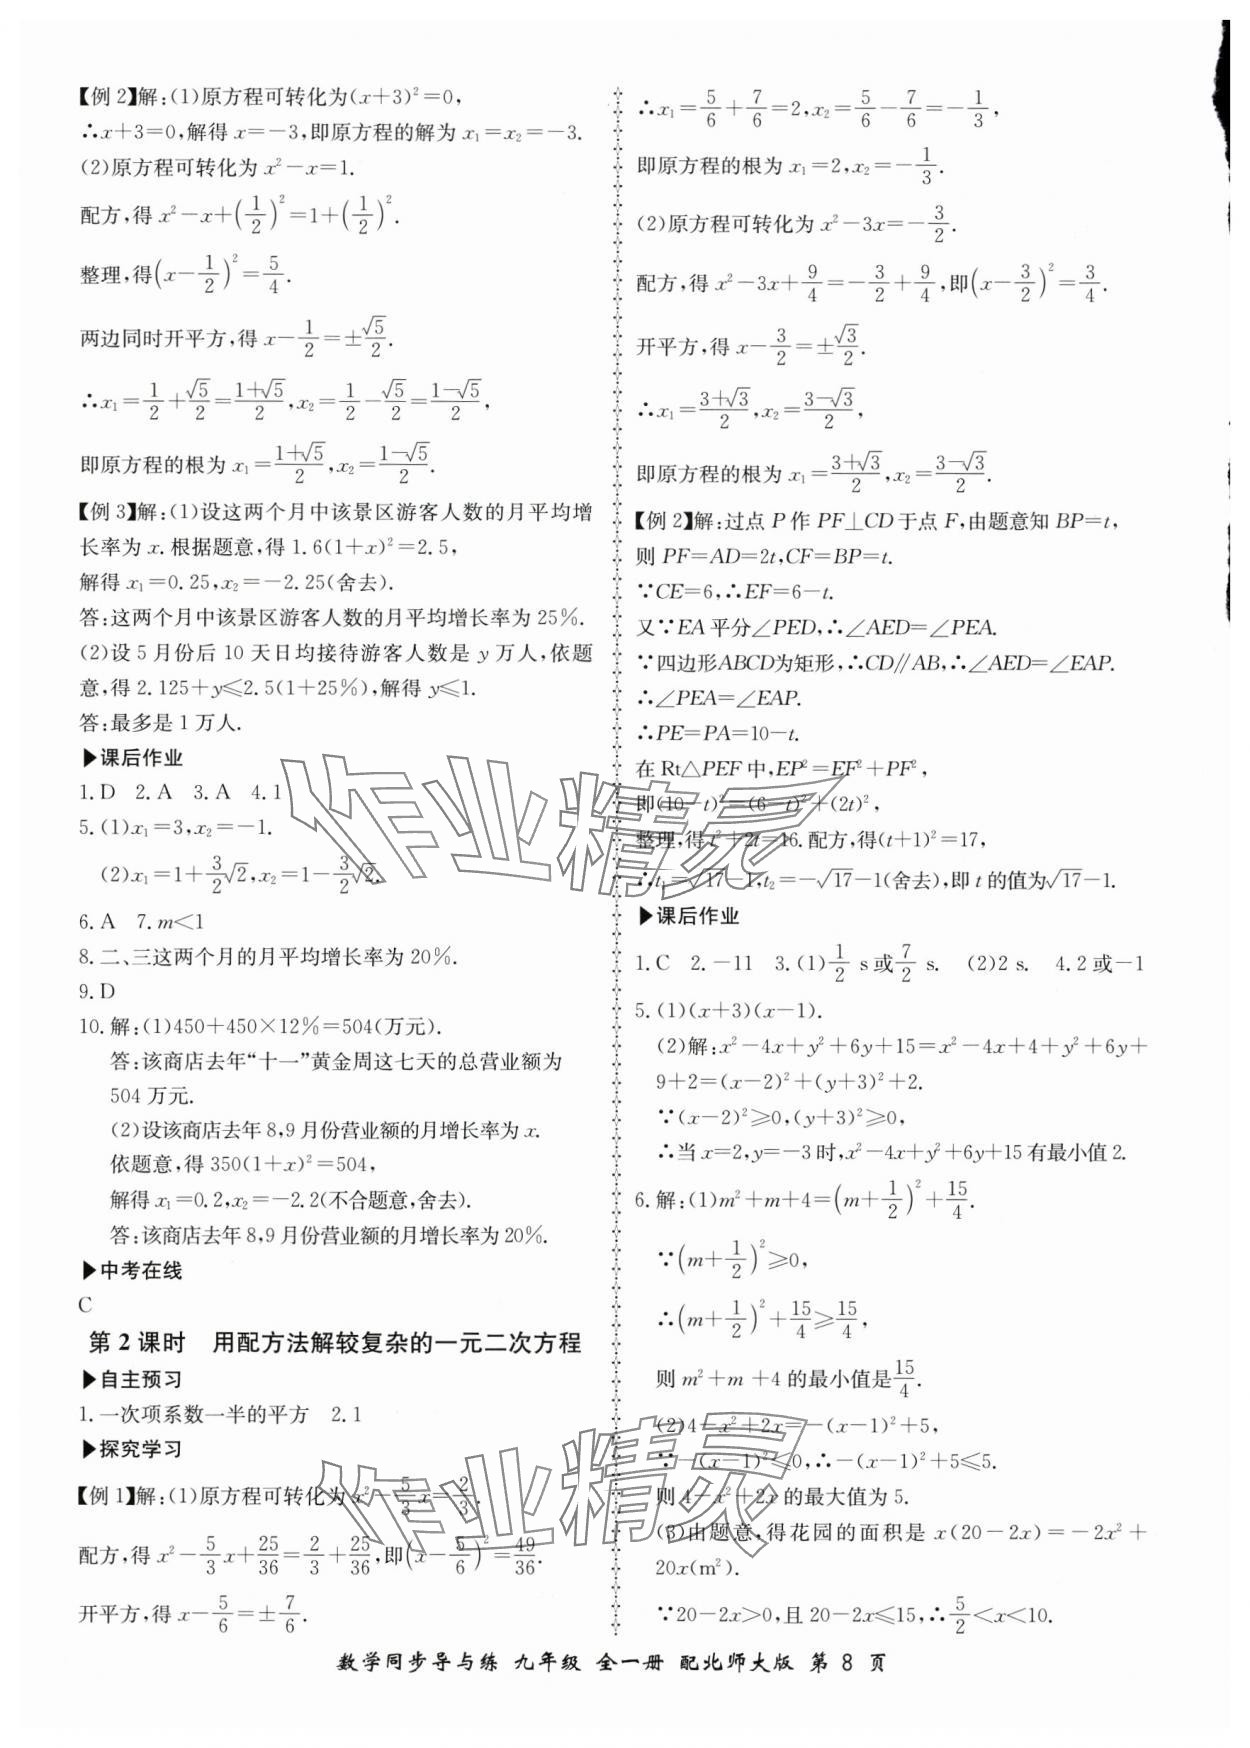 【例2】解:(1)原方程可转化为(x+3)²=0,
∴x+3=0,解得 x=-3,即原方程的解为 x₁=x₂=-3.
(2)原方程可转化为 x²-x=1.
配方,得 x²-x+(1/2)²=1+(1/2)².
整理,得(x-1/2)²=5/4.
两边同时开平方,得 x-1/2=±√5/2.
∴x₁=1/2+√5/2=(1+√5)/2,x₂=1/2-√5/2=(1-√5)/2,
即原方程的根为 x₁=(1+√5)/2,x₂=(1-√5)/2.
【例3】解:(1)设这两个月中该景区游客人数的月平均增
长率为 x.根据题意,得 1.6(1+x)²=2.5,
解得 x₁=0.25,x₂=-2.25(舍去).
答:这两个月中该景区游客人数的月平均增长率为 25%.
(2)设 5 月份后 10 天日均接待游客人数是 y 万人,依题
意,得 2.125+y≤2.5(1+25%),解得 y≤1.
答:最多是 1 万人.
▶课后作业
1.D 2.A 3.A 4.1
5.(1)x₁=3,x₂=-1.
(2)x₁=1+3/2√2,x₂=1-3/2√2.
6.A 7.m<1
8.二、三这两个月的月平均增长率为 20%.
9.D
10.解:(1)450+450×12%=504(万元).
答:该商店去年“十一”黄金周这七天的总营业额为
504 万元.
(2)设该商店去年 8,9 月份营业额的月增长率为 x.
依题意,得 350(1+x)²=504,
解得 x₁=0.2,x₂=-2.2(不合题意,舍去).
答:该商店去年 8,9 月份营业额的月增长率为 20%.
▶中考在线
C
第 2 课时 用配方法解较复杂的一元二次方程
▶自主预习
1.一次项系数一半的平方 2.1
▶探究学习
【例1】解:(1)原方程可转化为 x²-5/3x=2/3.
配方,得 x²-5/3x+25/36=2/3+25/36,即(x-5/6)²=49/36.
开平方,得 x-5/6=±7/6.
∴x₁=5/6+7/6=2,x₂=5/6-7/6=-1/3,
即原方程的根为 x₁=2,x₂=-1/3.
(2)原方程可转化为 x²-3x=-3/2.
配方,得 x²-3x+9/4=-3/2+9/4,即(x-3/2)²=3/4.
开平方,得 x-3/2=±√3/2.
∴x₁=(3+√3)/2,x₂=(3-√3)/2,
即原方程的根为 x₁=(3+√3)/2,x₂=(3-√3)/2.
【例2】解:过点 P 作 PF⊥CD 于点 F,由题意知 BP=t,
则 PF=AD=2t,CF=BP=t.
∵CE=6,∴EF=6-t.
又∵EA 平分∠PED,∴∠AED=∠PEA.
∵四边形ABCD为矩形,∴CD∥AB,∴∠AED=∠EAP.
∴∠PEA=∠EAP.
∴PE=PA=10-t.
在 Rt△PEF 中,EP²=EF²+PF²,
即(10-t)²=(6-t)²+(2t)²,
整理,得 t²+2t=16.配方,得(t+1)²=17,
∴t₁=√17-1,t₂=-√17-1(舍去),即 t 的值为√17-1.
▶课后作业
1.C 2.-11 3.(1)1/2 s或7/2 s. (2)2 s. 4.2 或-1
5.(1)(x+3)(x-1).
(2)解:x²-4x+y²+6y+15=x²-4x+4+y²+6y+
9+2=(x-2)²+(y+3)²+2.
∵(x-2)²≥0,(y+3)²≥0,
∴当 x=2,y=-3 时,x²-4x+y²+6y+15 有最小值 2.
6.解:(1)m²+m+4=(m+1/2)²+15/4.
∵(m+1/2)²≥0,
∴(m+1/2)²+15/4≥15/4,
则 m²+m+4 的最小值是15/4.
(2)4-x²+2x=-(x-1)²+5,
∵-(x-1)²≤0,∴-(x-1)²+5≤5.
则 4-x²+2x 的最大值为 5.
(3)由题意,得花园的面积是 x(20-2x)=-2x²+
20x(m²).
∵20-2x>0,且 20-2x≤15,∴5/2<x<10.
数学同步导与练 九年级 全一册 配北师大版 第 8 页
作业精灵
作业精灵